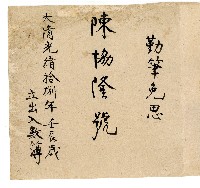 勤筆免思
陳協隆號
大清光緒拾捌年壬辰歲
立出入數簿